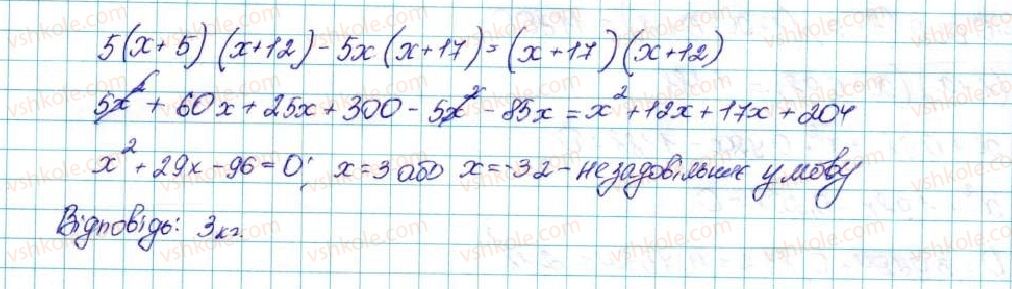 5(x+5)(x+12)-5x(x+17)=(x+17)(x+12)
5x²+60x+25x+300-5x²-85x=x²+12x+17x+204
x²+29x-96=0; x=3 або x=-32 - незадовільняє умову
Відповідь: 3кг.